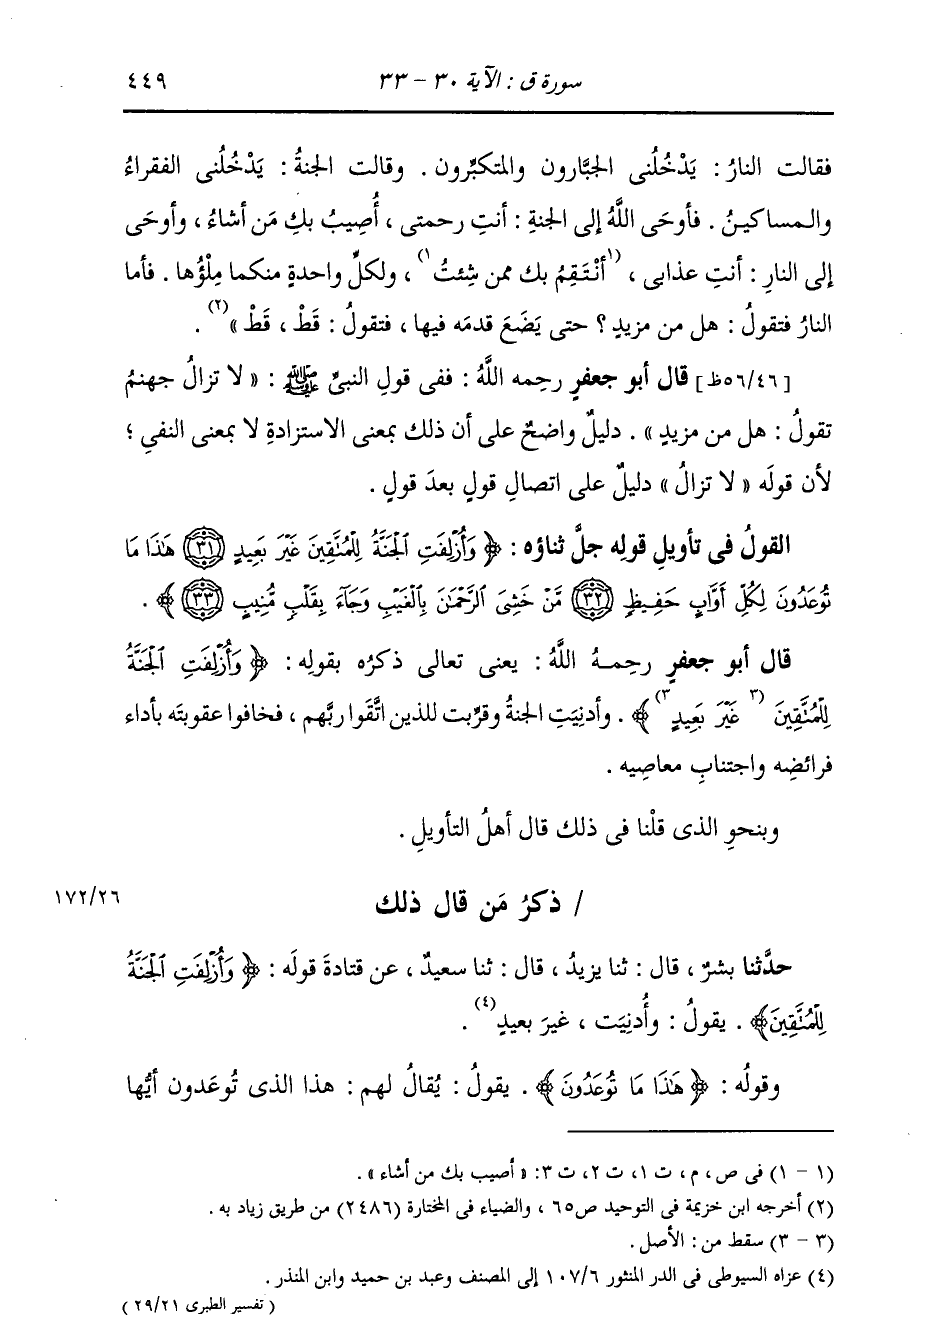 سورة ق : الآية ٣٠ - ٣٣ ٤٤٩
فقالت النارُ : يَدْخُلُنى الجبَّارون والمتكبِّرون . وقالت الجنةُ : يَدْخُلُنى الفقراءُ
والمساكينُ . فأوحَى اللَّهُ إلى الجنةِ : أنتِ رحمتى ، أُصِيبُ بكِ مَن أشاءُ ، وأوحَى
إلى النارِ : أنتِ عذابى ، (١أَنْتَقِمُ بك ممن شِئتُ١) ، ولكلِّ واحدةٍ منكما مِلْؤُها . فأما
النارُ فتقولُ : هل من مزيدٍ ؟ حتى يَضَعَ قدمَه فيها ، فتقولُ : قَطْ ، قَطْ »(٢) .
[٥٦/٤٦ظ] قال أبو جعفرٍ رحِمه اللَّهُ : ففى قولِ النبىِّ ﷺ : « لا تزالُ جهنمُ
تقولُ : هل من مزيدٍ » . دليلٌ واضحٌ على أن ذلك بمعنى الاستزادةِ لا بمعنى النفىِ ؛
لأن قولَه « لا تزالُ » دليلٌ على اتصالِ قولٍ بعدَ قولٍ .
القولُ فى تأويلِ قولِه جلَّ ثناؤه : ﴿ وَأُزْلِفَتِ ٱلْجَنَّةُ لِلْمُتَّقِينَ غَيْرَ بَعِيدٍ ٣١ هَٰذَا مَا
تُوعَدُونَ لِكُلِّ أَوَّابٍ حَفِيظٍ ٣٢ مَّنْ خَشِىَ ٱلرَّحْمَٰنَ بِٱلْغَيْبِ وَجَآءَ بِقَلْبٍ مُّنِيبٍ ٣٣ ﴾ .
قال أبو جعفرٍ رحِمهُ اللَّهُ : يعنى تعالى ذكرُه بقولِه : ﴿ وَأُزْلِفَتِ ٱلْجَنَّةُ
لِلْمُتَّقِينَ (٣غَيْرَ بَعِيدٍ٣) ﴾ . وأُدنِيَتِ الجنةُ وقرِّبت للذين اتَّقَوا ربَّهم ، فخافوا عقوبتَه بأداء
فرائضِه واجتنابِ معاصِيه .
وبنحوِ الذى قلْنا فى ذلك قال أهلُ التأويلِ .
/ ذكرُ مَن قال ذلك ١٧٢/٢٦
حدَّثنا بشرٌ ، قال : ثنا يزيدُ ، قال : ثنا سعيدٌ ، عن قتادةَ قولَه : ﴿ وَأُزْلِفَتِ ٱلْجَنَّةُ
لِلْمُتَّقِينَ﴾ . يقولُ : وأُدنِيَت ، غيرَ بعيدٍ(٤) .
وقولُه : ﴿ هَٰذَا مَا تُوعَدُونَ ﴾ . يقولُ : يُقالُ لهم : هذا الذى تُوعَدون أيُّها
(١ - ١) فى ص ، م ، ت ١، ت ٢، ت ٣: « أصيب بك من أشاء » .
(٢) أخرجه ابن خزيمة فى التوحيد ص٦٥ ، والضياء فى المختارة (٢٤٨٦) من طريق زياد به .
(٣ - ٣) سقط من : الأصل .
(٤) عزاه السيوطى فى الدر المنثور ١٠٧/٦ إلى المصنف وعبد بن حميد وابن المنذر .
( تفسير الطبرى ٢٩/٢١ )